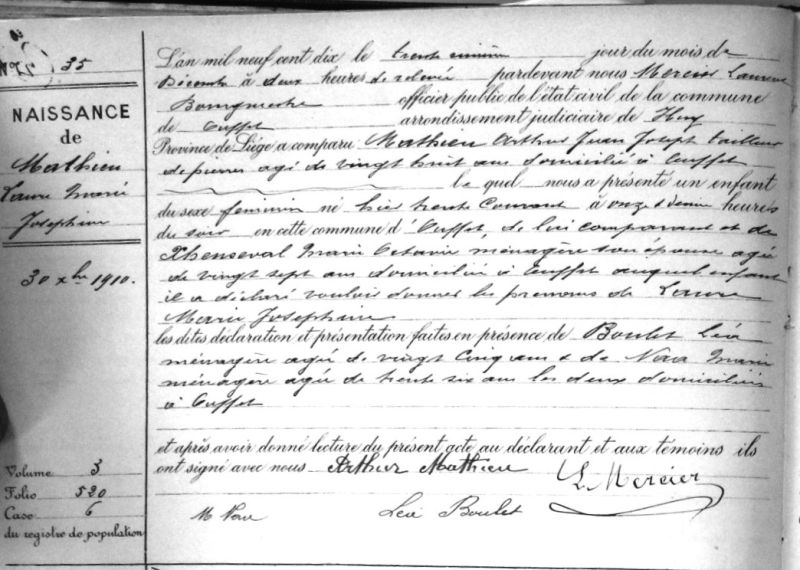 N° 35
NAISSANCE
de
Mathieu
Laure Marie
Josephine
30 xbre 1910.
Volume 3
Folio 520
Case 6
du registre de population
L'an mil neuf cent dix le trente unième jour du mois de
Décembre à deux heures de relevée pardevant nous Mercier Laurent
Bourgmestre officier public de l'état civil de la commune
de Ouffet arrondissement judiciaire de Huy
Province de Liége a comparu Mathieu Arthur Juan Joseph tailleur
de pierres agé de vingt huit ans domicilié à Ouffet
le quel nous a présenté un enfant
du sexe feminin né hier trente Courant à onze & demie heures
du soir en cette commune d'Ouffet, de lui comparant et de
Thenseval Marie Octavie ménagère son épouse agée
de vingt sept ans domiciliée à Ouffet auquel enfant
il a déclaré vouloir donner les prenoms de Laure
Marie Josephine
les dites déclaration et présentation faites en présence de Boulet Léa
ménagère agée de vingt Cinq ans & de Nova Marie
ménagère agée de trente six ans les deux domiciliées
à Ouffet
et après avoir donné lecture du présent acte au déclarant et aux témoins ils
ont signé avec nous Arthur Mathieu L. Mercier
M Léa Boulet